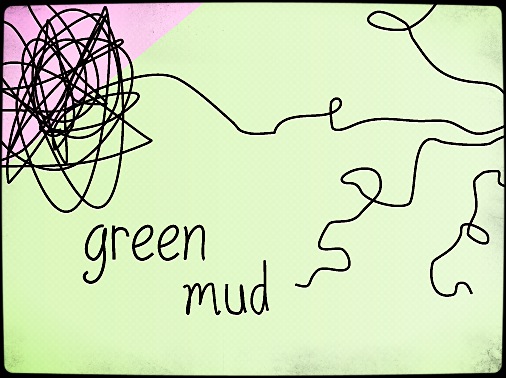 green
mud